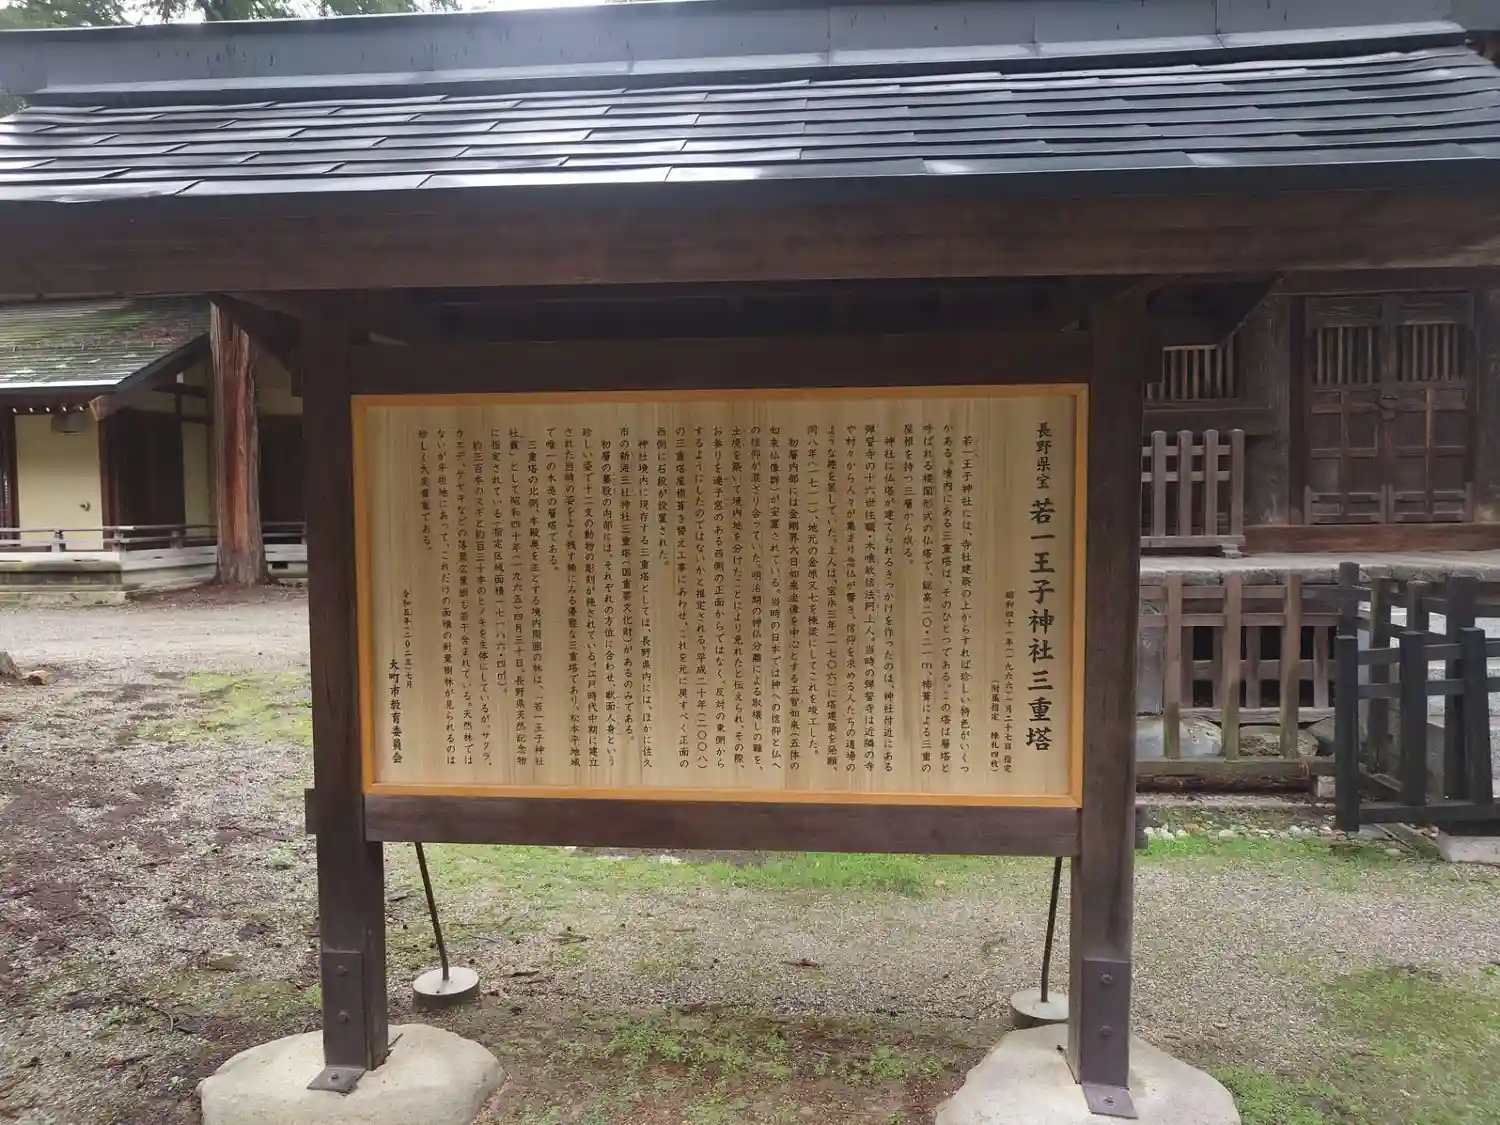 長野県宝 若一王子神社三重塔
昭和四十一年(一九六六)一月二十七日 指定
(附属指定 棟札四枚)
若一王子神社には、寺社建築の上からすれば珍しい特色がいくつ
かある。境内にある三重塔は、そのひとつである。この塔は層塔と
呼ばれる楼閣形式の仏塔で、総高二〇・二一m、杮葺による三重の
屋根を持つ三層から成る。
神社に仏塔が建てられるきっかけを作ったのは、神社付近にある
弾誓寺の十六世住職・木喰敏信法阿上人。当時の弾誓寺は近隣の寺
や村々から人々が集まり念仏が響き、信仰を求める人たちの道場の
ような趣を呈していた。上人は、宝永三年(一七〇六)に塔建築を発願、
同八年(一七一一)、地元の金原又七を棟梁にしてこれを竣工した。
初層内部には金剛界大日如来坐像を中心とする五智如来(五体の
如来仏像群)が安置されている。当時の日本では神への信仰と仏へ
の信仰が混ざり合っていた。明治期の神仏分離による取壊しの難を、
土境を築いて境内地を分けたことにより免れたと伝えられ、その際、
お参りを連子窓のある西側の正面からではなく、反対の東側から
するようにしたのではないかと推定される。平成二十年(二〇〇八)
の三重塔屋根葺き替え工事にあわせ、これを元に戻すべく正面の
西側に石段が設置された。
神社境内に現存する三重塔としては、長野県内には、ほかに佐久
市の新海三社神社三重塔(国重要文化財)があるのみである。
初層の蟇股の内部には、それぞれの方位に合わせ、獣面人身という
珍しい姿で十二支の動物の彫刻が施されている。江戸時代中期に建立
された当時の姿をよく残す稀にみる優雅な三重塔であり、松本平地域
で唯一の木造の層塔である。
三重塔の北側、本殿東を主とする境内周囲の林は、「若一王子神社
社叢」として昭和四十年(一九六五)四月三十日、長野県天然記念物
に指定されている(指定区域面積一七一八六・四㎡)。
約三百本のスギと約百三十本のヒノキを主体にしているが、サワラ、
カエデ、ケヤキなどの落葉広葉樹も若干含まれている。天然林では
ないが平坦地にあって、これだけの面積の針葉樹林が見られるのは
珍しく大変貴重である。
令和五年(二〇二三)七月
大町市教育委員会